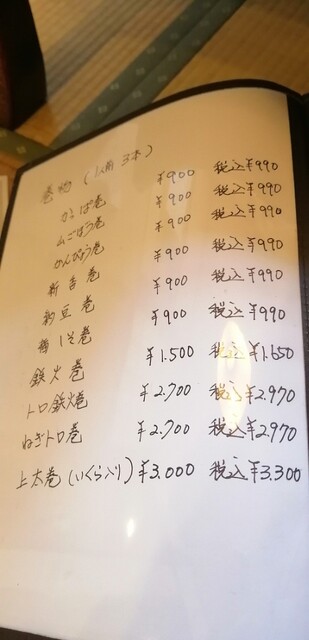 巻物 (1人前 3本)
かっぱ巻 ¥900 税込¥990
山ごぼう巻 ¥900 税込¥990
かんぴょう巻 ¥900 税込¥990
新香巻 ¥900 税込¥990
納豆巻 ¥900 税込¥990
梅しそ巻 ¥900 税込¥990
鉄火巻 ¥1.500 税込¥1.650
トロ鉄火巻 ¥2.700 税込¥2.970
ねぎトロ巻 ¥2.700 税込¥2.970
上太巻(いくら入り) ¥3.000 税込¥3.300